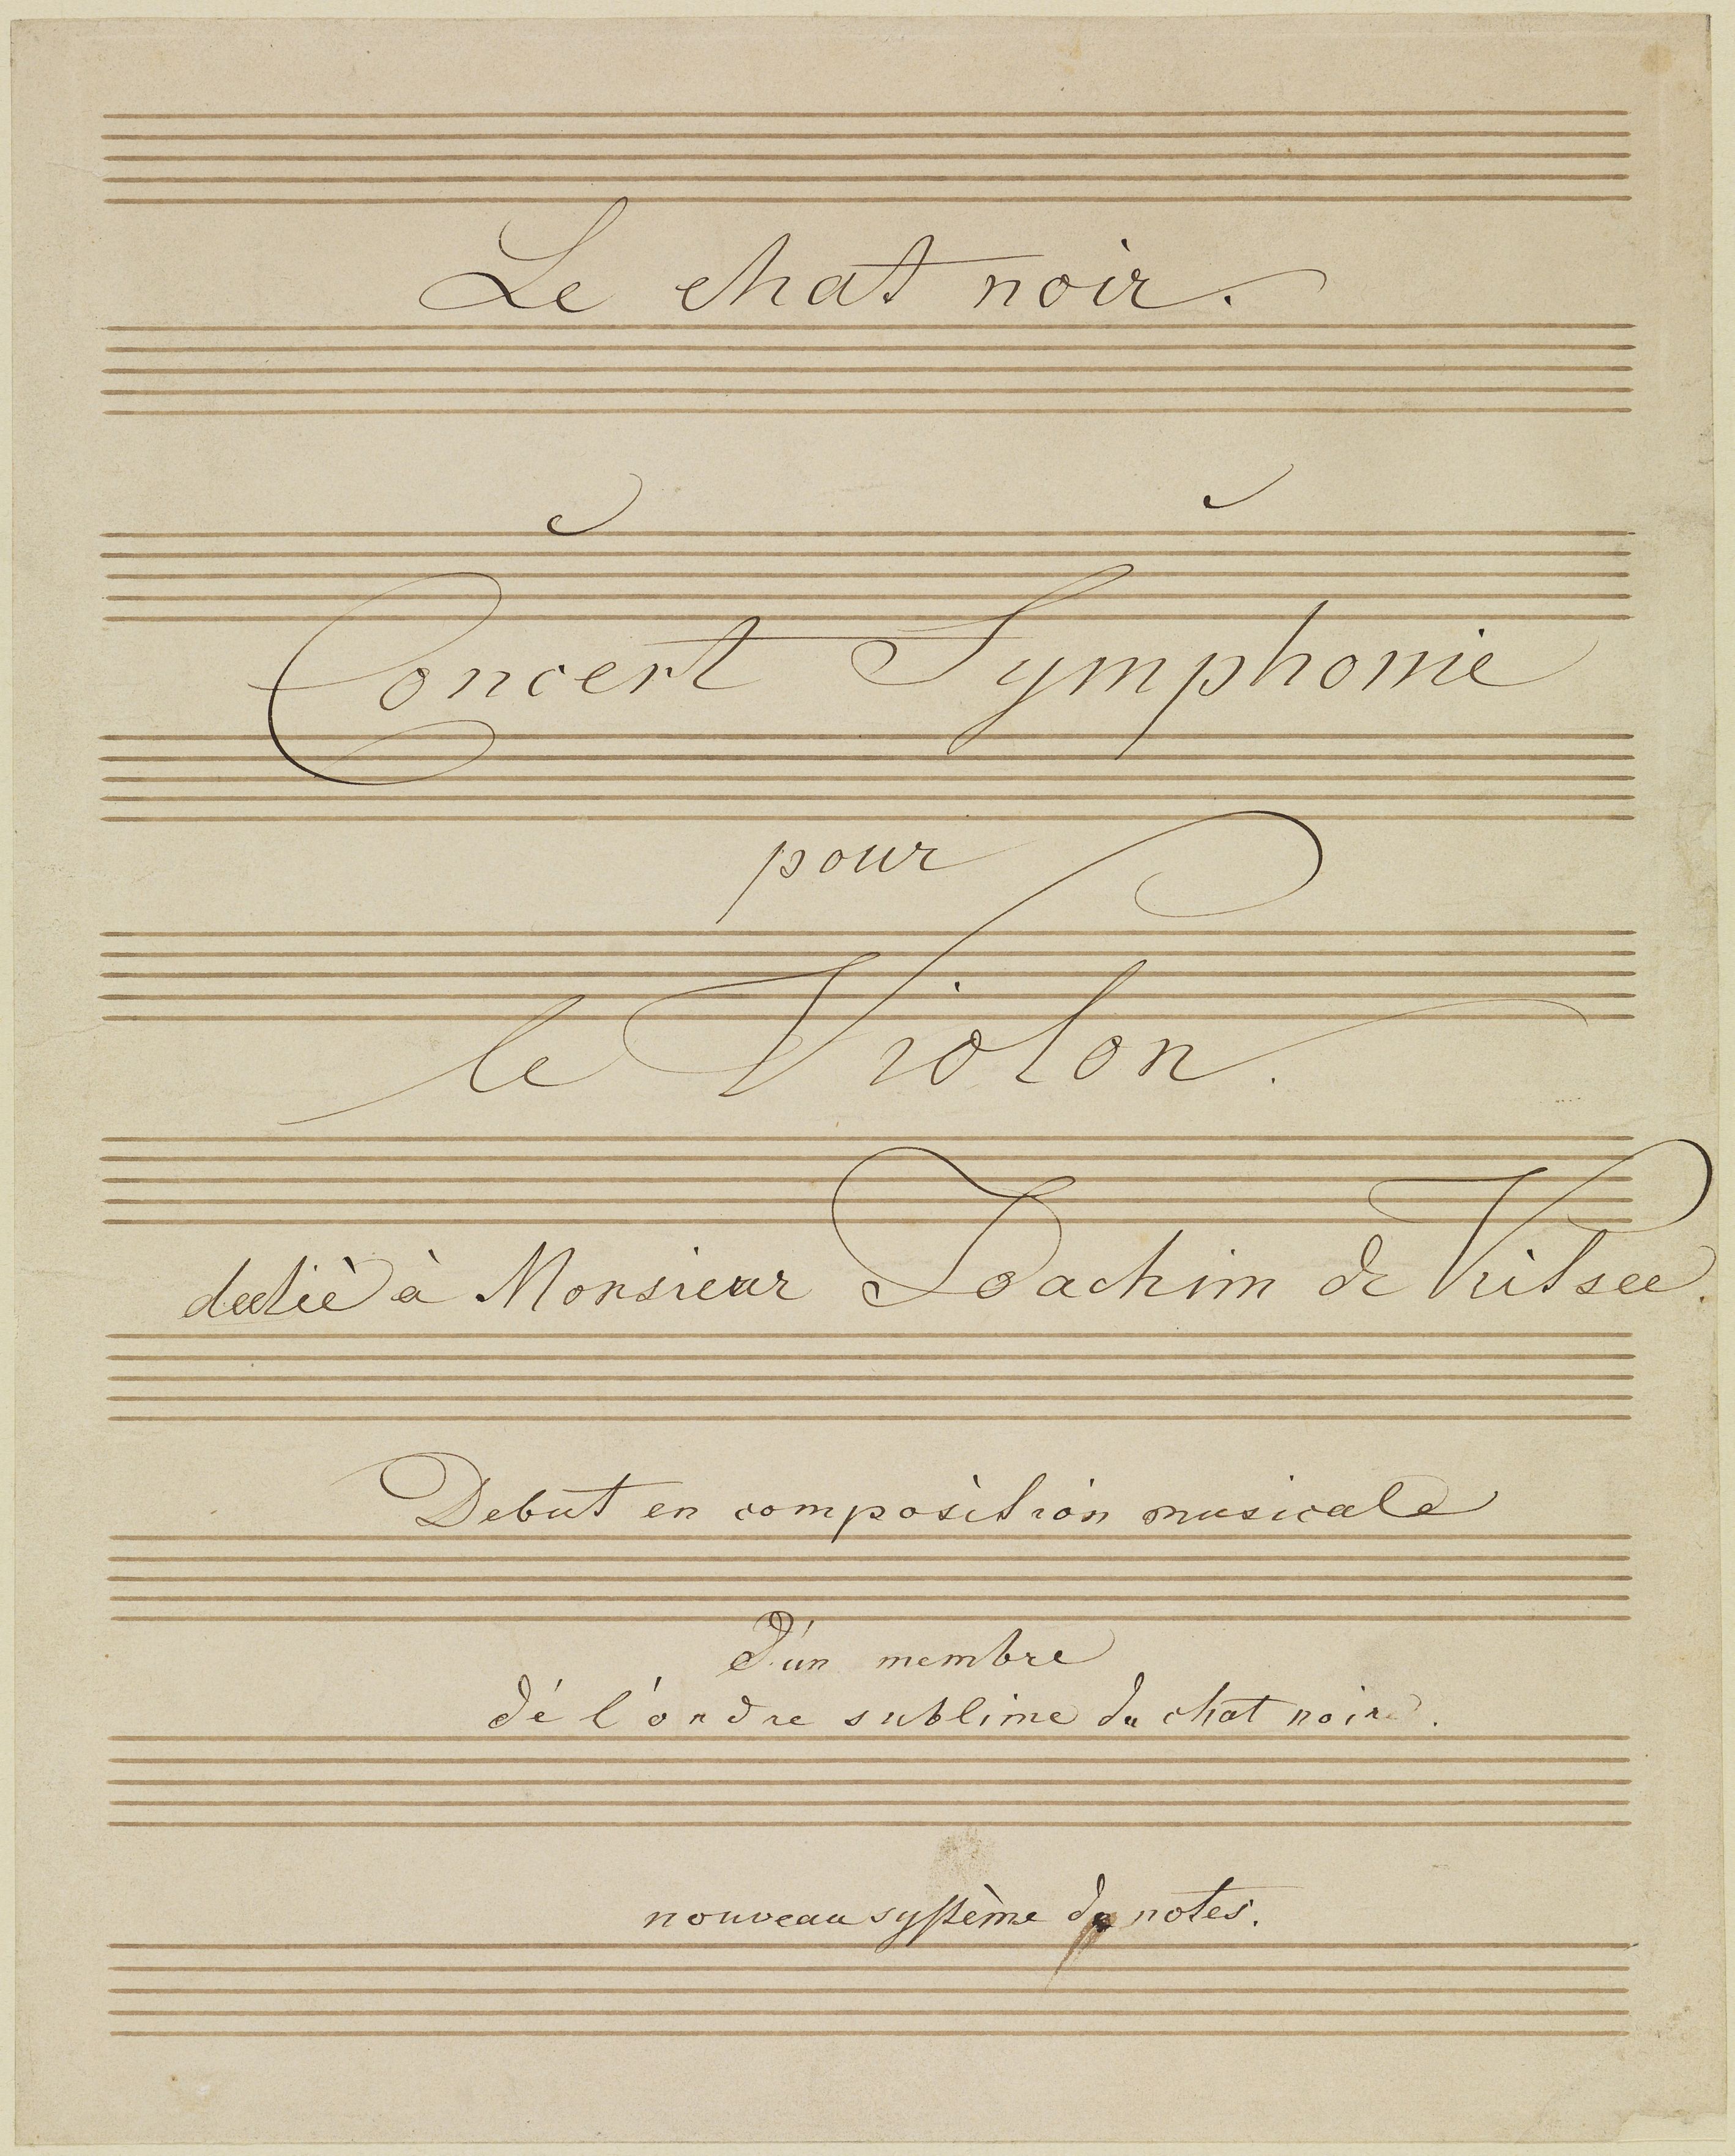 Le chat noir.
Concert Symphonie
pour
le Violon.
dediè à Monsieur Joachim de Kitsee.
Debut en composition musicale
D'un membre
dé l'ordre sublime du chat noir.
nouveau système de notes.